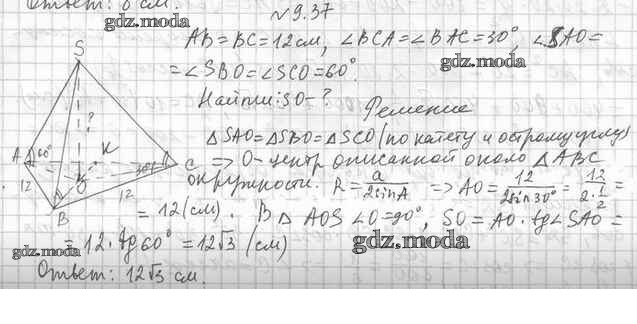 Ответ: 8 см.
№9.37
gdz.moda
AB=BC=12см, ∠BCA=∠BAC=30°, ∠SAO=
gdz.moda
=∠SBO=∠SCO=60°.
Найти: SO-?
Решение
△SAO=△SBO=△SCO (по катету и острому углу)
⇒ O-центр описанной около △ABC
окружности. R = a/2sinA ⇒ AO = 12/2sin30° = 12/2·1/2 =
= 12 (см). В △AOS ∠O=90°, SO = AO·tg∠SAO =
= 12·tg60° = 12√3 (см)
gdz.moda
gdz.moda
Ответ: 12√3 см.
S
?
A
60°
K
30°
C
12
O
12
B